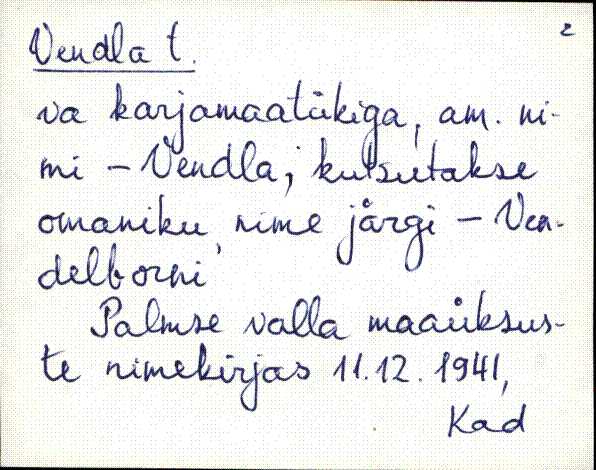 2
Vendla t.
va karjamaatükiga, am. ni-
mi – Vendla; kutsutakse
omaniku nime järgi – Ven-
delborni
Palmse valla maaüksus-
te nimekirjas 11.12.1941,
Kad